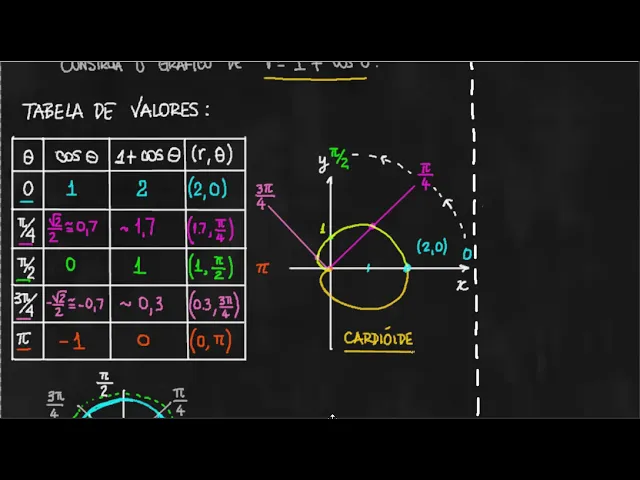 CONSTRUA O GRÁFICO DE r = 1 + cos θ.
TABELA DE VALORES:
θ cos θ 1 + cos θ (r, θ)
0 1 2 (2,0)
π/4 √2/2 ≅ 0,7 ~ 1,7 (1.7, π/4)
π/2 0 1 (1, π/2)
3π/4 -√2/2 ≅ -0,7 ~ 0,3 (0.3, 3π/4)
π -1 0 (0, π)
y π/2
π/4
3π/4
1
(2,0) 0
π
x
CARDIÓIDE
π/2
3π/4 π/4